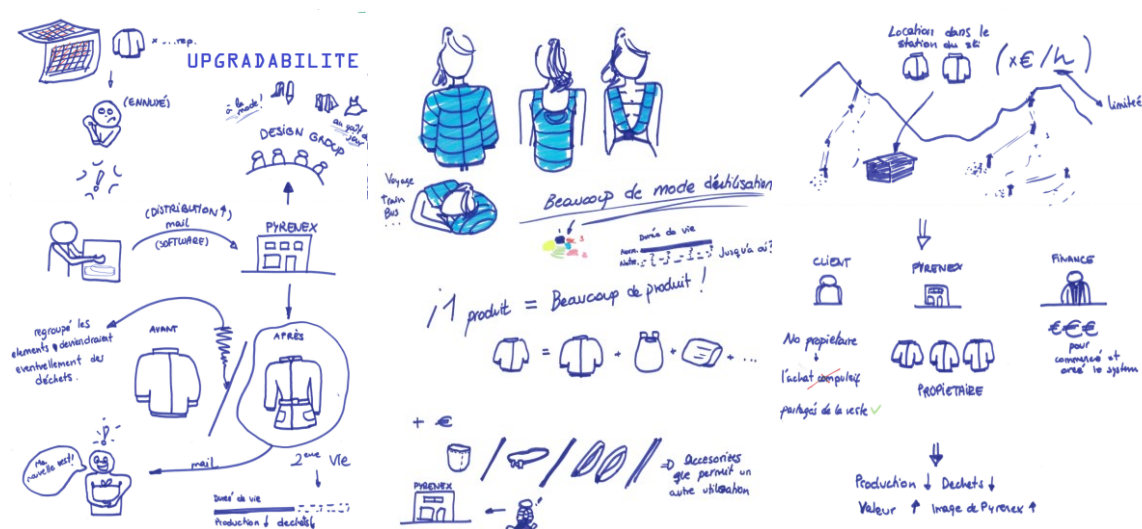 x ... rep.
UPGRADABILITE
(ENNUYÉ)
à la mode!
au goût du jour
DESIGN GROUP
(DISTRIBUTION ↑)
mail
(SOFTWARE)
PYRENEX
regroupé les
elements q deviendraient
eventuellement des
déchets.
AVANT
APRÈS
Ma
nouvelle vest!
mail
2eme Vie
Dureé de vie
Production ↓ dechets↓
Voyage
train
Bus
...
Beaucoup de mode d'utilisation
Durée de vie
Norm.
Notre
Jusqu'a où?
¡1 produit = Beaucoup de produit!
= + + + ...
+ €
PYRENEX
=> Accesoires
que permit un
autre utilisation
Location dans le
station du ski
(x€/h)
limitée
CLIENT
PYRENEX
FINANCE
No propietaire
l'achat compulsif
partagés de la veste ✓
PROPIETAIRE
€€€
pour
commencé et
creé le system
Production ↓ Dechets ↓
Valeur ↑ Image de Pyrenex ↑